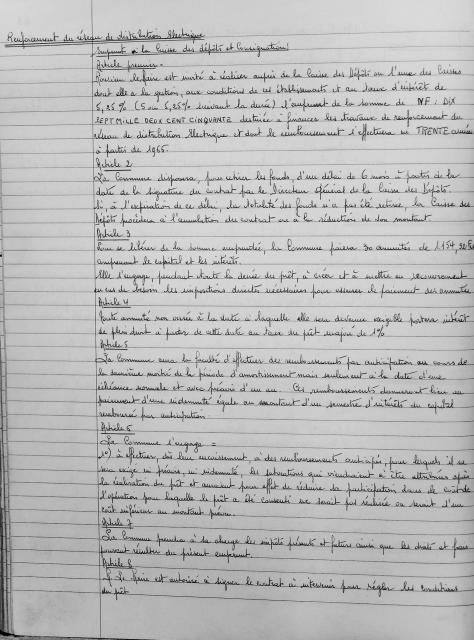 Renforcement du réseau de distribution électrique
Emprunt à la Caisse des dépôts et Consignation
Article premier.
le Maire est invité à réaliser auprès de la Caisse des Dépôts ou l'une des Caisses
dont elle a la gestion, aux conditions de ces établissements et au taux d'intérêt de
5,25% (5 ou 5,25% suivant la durée) l'emprunt de la somme de NF : DIX
SEPT MILLE DEUX CENT CINQUANTE destinée à financer les travaux de renforcement du
réseau de distribution électrique et dont le remboursement s'effectuera en TRENTE années
à partir de 1965.
Article 2
La Commune disposera, pour retirer les fonds, d'un délai de 6 mois à partir de la
date de la signature du contrat par le Directeur général de la Caisse des Dépôts.
Si, à l'expiration de ce délai, la totalité des fonds n'a pas été retirée, la Caisse des
Dépôts procédera à l'annulation du contrat ou à la réduction de son montant.
Article 3
Pour se libérer de la somme empruntée, la Commune paiera 30 annuités de
comprenant le capital et les intérêts.
Elle s'engage, pendant toute la durée du prêt, à créer et à mettre en recouvrement
en cas de besoin les impositions directes nécessaires pour assurer le paiement des annuités
Article 4
Toute annuité non versée à la date à laquelle elle sera devenue exigible portera intérêt
de plein droit à partir de cette date au taux du prêt majoré de 1%
Article 5
La Commune aura la faculté d'effectuer des remboursements par anticipation au cours de
la moitié de la période d'amortissement mais seulement à la date d'une
échéance normale et avec préavis d'un an. Ces remboursements donneront lieu au
paiement d'une indemnité égale au montant d'un semestre d'intérêts du capital
remboursé par anticipation.
Article 6
La Commune s'engage =
1°) à effectuer, dès leur encaissement, à des remboursements anticipés, pour lesquels il ne
sera exigé ni préavis, ni indemnité, les subventions qui viendraient à être attribuées après
la réalisation du prêt et auraient pour effet de réduire sa participation dans le coût de
l'opération pour laquelle le prêt a été consenti ne serait pas réalisée ou serait d'un
coût inférieur au montant prévu.
Article 7
La Commune prendra à sa charge les impôts présents et futurs ainsi que les droits et frais
pouvant résulter du présent emprunt.
Article 8
le Maire est autorisé à signer le contrat à intervenir pour régler les conditions
du prêt